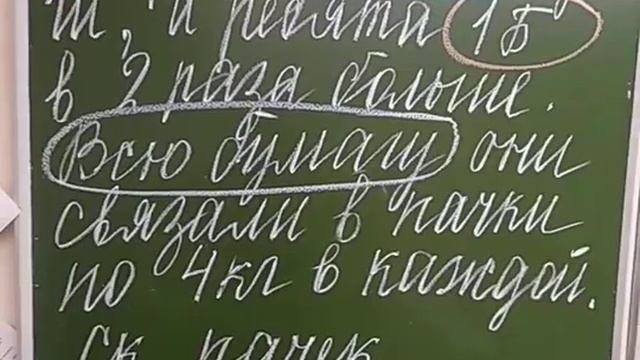 , а ребята 1 Б
в 2 раза больше.
Всю бумагу они
связали в пачки
по 4 кг в каждой.
Ск. пачек